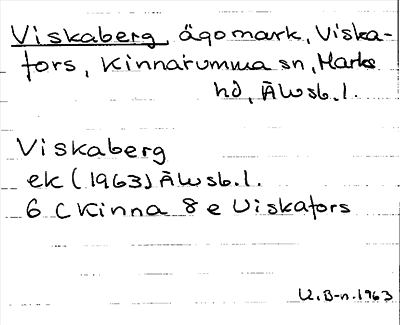 Viskaberg ägomark, Viska-
fors, Kinnarumma sn, Marks
hd, Älvsb.l.
Viskaberg
ek (1963) Älvsb.l.
6 C Kinna 8 e Viskafors
U.B-n.1963